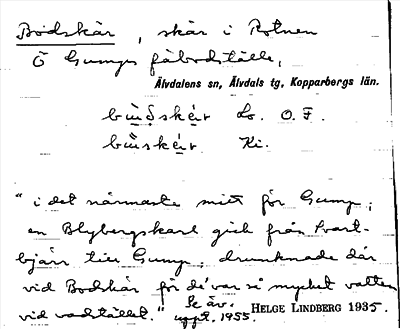 Bodskär, skär i Rotnen
Ö Gumys fäbodställe,
Älvdalens sn, Älvdals tg, Kopparbergs län.
Lo. O.F.
Ki.
"i det närmaste mitt för Gump,
en Blybergskarl gick från Svart-
bjärr till Gump, drunknade där
vid Bodskär för de' var så mycket vatten
vid vadstället."
Se äv. uppt. 1955. HELGE LINDBERG 1935.